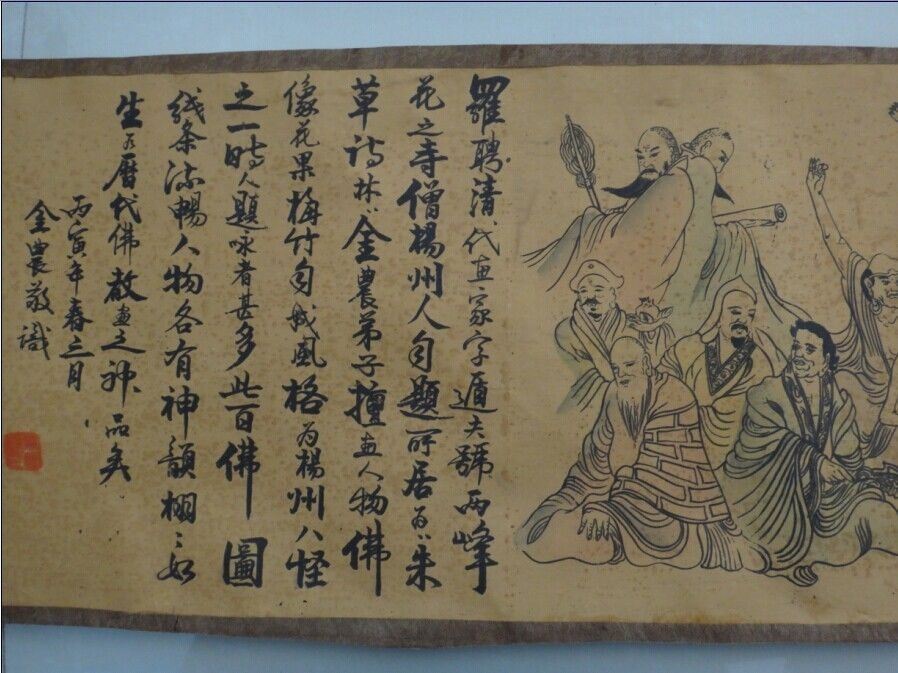 羅聘清代画家字遁夫號两峰
花之寺僧楊州人自題所居为“朱
草詩林”金農弟子擅画人物佛
像花果梅竹自成風格为楊州八怪
之一時人題咏者甚多此百佛圖
线条流暢人物各有神韻栩々如
生乃曆代佛教画之神品矣
丙寅年春三月
金農敬識